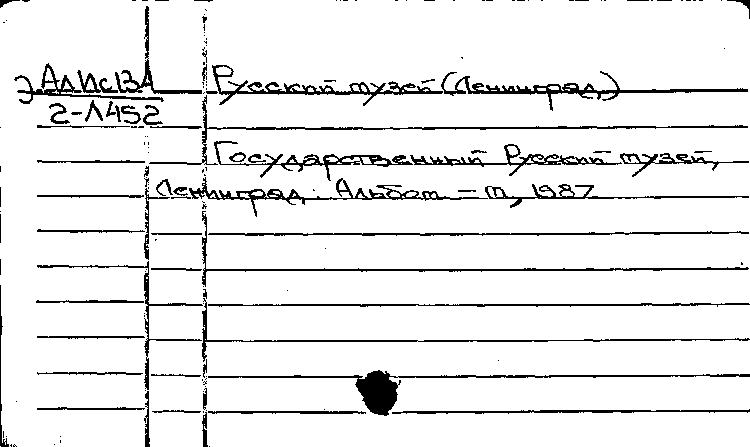 Э АлИс13А
2-Л452
Русский музей (Ленинград,)
Государственный Русский музей,
Ленинград: Альбом. — М, 1987